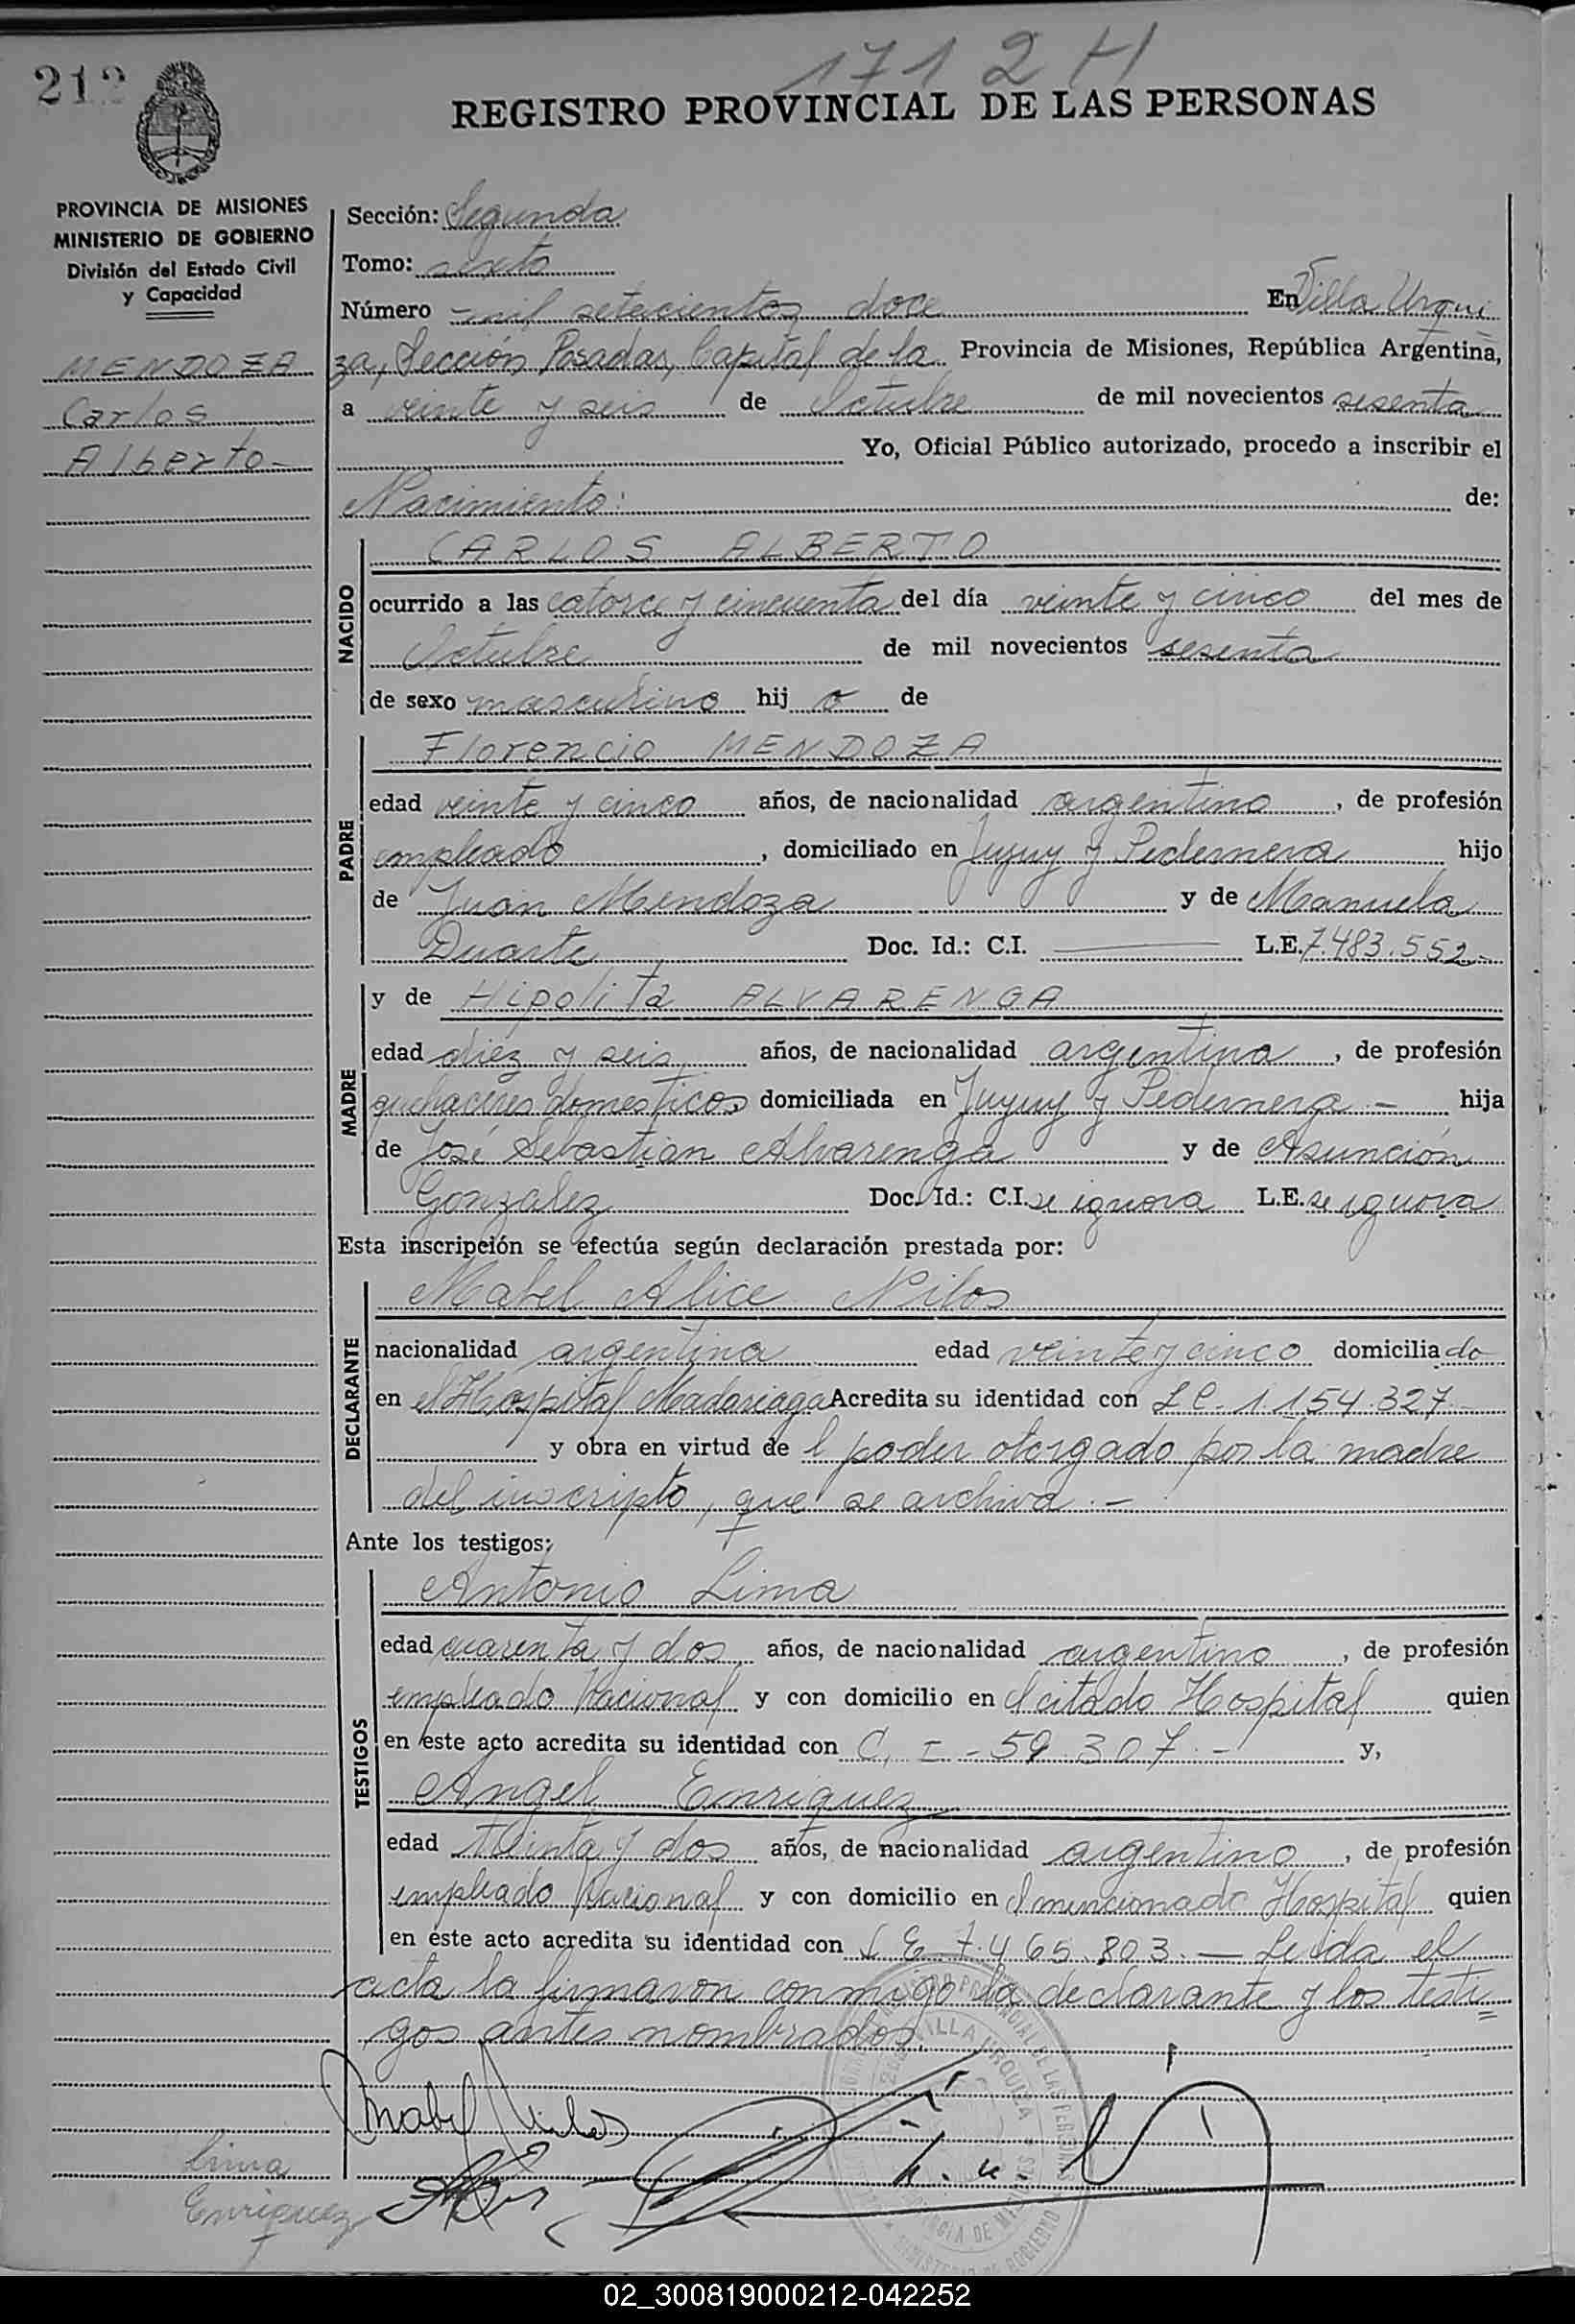 212
1712 H
REGISTRO PROVINCIAL DE LAS PERSONAS
PROVINCIA DE MISIONES
MINISTERIO DE GOBIERNO
División del Estado Civil
y Capacidad
MENDOZA
Carlos
Alberto-
Sección: Segunda
Tomo: sexto
Número mil setecientos doce En Villa Urqui
za, Sección Posadas, Capital de la Provincia de Misiones, República Argentina,
a veinte y seis de Octubre de mil novecientos sesenta
Yo, Oficial Público autorizado, procedo a inscribir el
Nacimiento: de:
NACIDO
CARLOS ALBERTO
ocurrido a las catorce y cincuenta del día veinte y cinco del mes de
Octubre de mil novecientos sesenta
de sexo masculino hij o de
PADRE
Florencio MENDOZA
edad veinte y cinco años, de nacionalidad argentino, de profesión
empleado, domiciliado en Jujuy y Pedernera hijo
de Juan Mendoza y de Manuela
Duarte Doc. Id.: C.I. — L.E. 7.483.552-
MADRE
y de Hipolita ALVARENGA
edad diez y seis años, de nacionalidad argentina, de profesión
quehaceres domesticos domiciliada en Jujuy y Pedernera.- hija
de José Sebastian Alvarenga y de Asunción
Gonzalez Doc. Id.: C.I. se ignora L.E. se ignora
Esta inscripción se efectúa según declaración prestada por:
DECLARANTE
Mabel Alice Nilos
nacionalidad argentina edad veinte y cinco domicilia do
en el Hospital Madariaga Acredita su identidad con L C. 1.154.327-
y obra en virtud de l poder otorgado por la madre
del inscripto, que se archiva.-
Ante los testigos:
TESTIGOS
Antonio Lima
edad cuarenta y dos años, de nacionalidad argentino, de profesión
empleado Nacional y con domicilio en el citado Hospital quien
en este acto acredita su identidad con C. I. -59.307.- y,
Angel Enriquez
edad treinta y dos años, de nacionalidad argentino, de profesión
empleado Nacional y con domicilio en el mencionado Hospital quien
en este acto acredita su identidad con L E 7.465.803.— Leida el
acta la firmaron conmigo la declarante y los testi
gos antes nombrados.
VILLA URQUIZA
Mabel Nilos
Lima
Enriquez
02_300819000212-042252